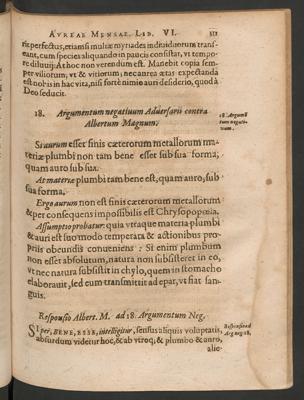 AVREAE MENSAE. LIB. VI. 321
rit perfectus, etiamsi multæ myriades indiuiduorum transf-
eant, cum species aliquando in paucis consistat, vt tempo-
re diluuij: At hoc non verendum est. Manebit copia sem-
per viliorum, vt & vitiorum; nec aurea ætas expectanda
est nobis in hac vita, nisi fortè nimio auri desiderio, quod à
Deo seducit.
18. Argumentum negatiuum Aduersarii contra
Albertum Magnum.
18. Argum̃
tum negati-
uum.
Si aurum esset finis cæterorum metallorum ma-
teriæ plumbi non tam bene esset sub sua forma;
quam auro sub sua.
At materiæ plumbi tam bene est, quam auro, sub
sua forma.
Ergo aurum non est finis cæterorum metallorum
& per consequens impossibilis est Chrysopopœia.
Assumptio probatur: quia vtraque materia plumbi
& auri est suo modo temperata & actionibus pro-
priis obeundis conueniens: Si enim plumbum
non esset absolutum, natura non subsisteret in eo,
vt nec natura subsistit in chylo, quem in stomacho
elaborauit, sed eum transmittit ad epat, vt fiat san-
guis.
Responsio Albert. M. ad 18. Argumentum Neg.
SI per, BENE, ESSE, intelligitur, sensus aliquis voluptatis,
absurdum videtur hoc, & ab vtroq; & plumbo & auro,
Responsio ad
Arg. neg. 18.
alie-